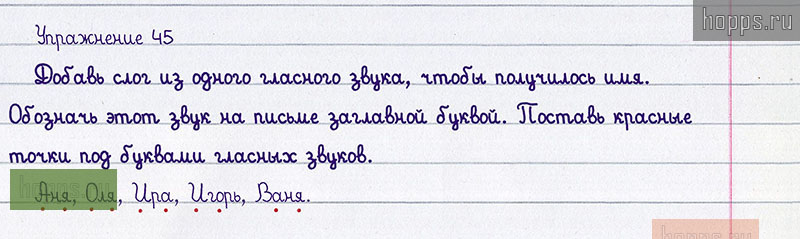 hopps.ru
Упражнение 45
Добавь слог из одного гласного звука, чтобы получилось имя.
Обозначь этот звук на письме заглавной буквой. Поставь красные
точки под буквами гласных звуков.
Аня, Оля, Ира, Игорь, Ваня.
hopps.ru